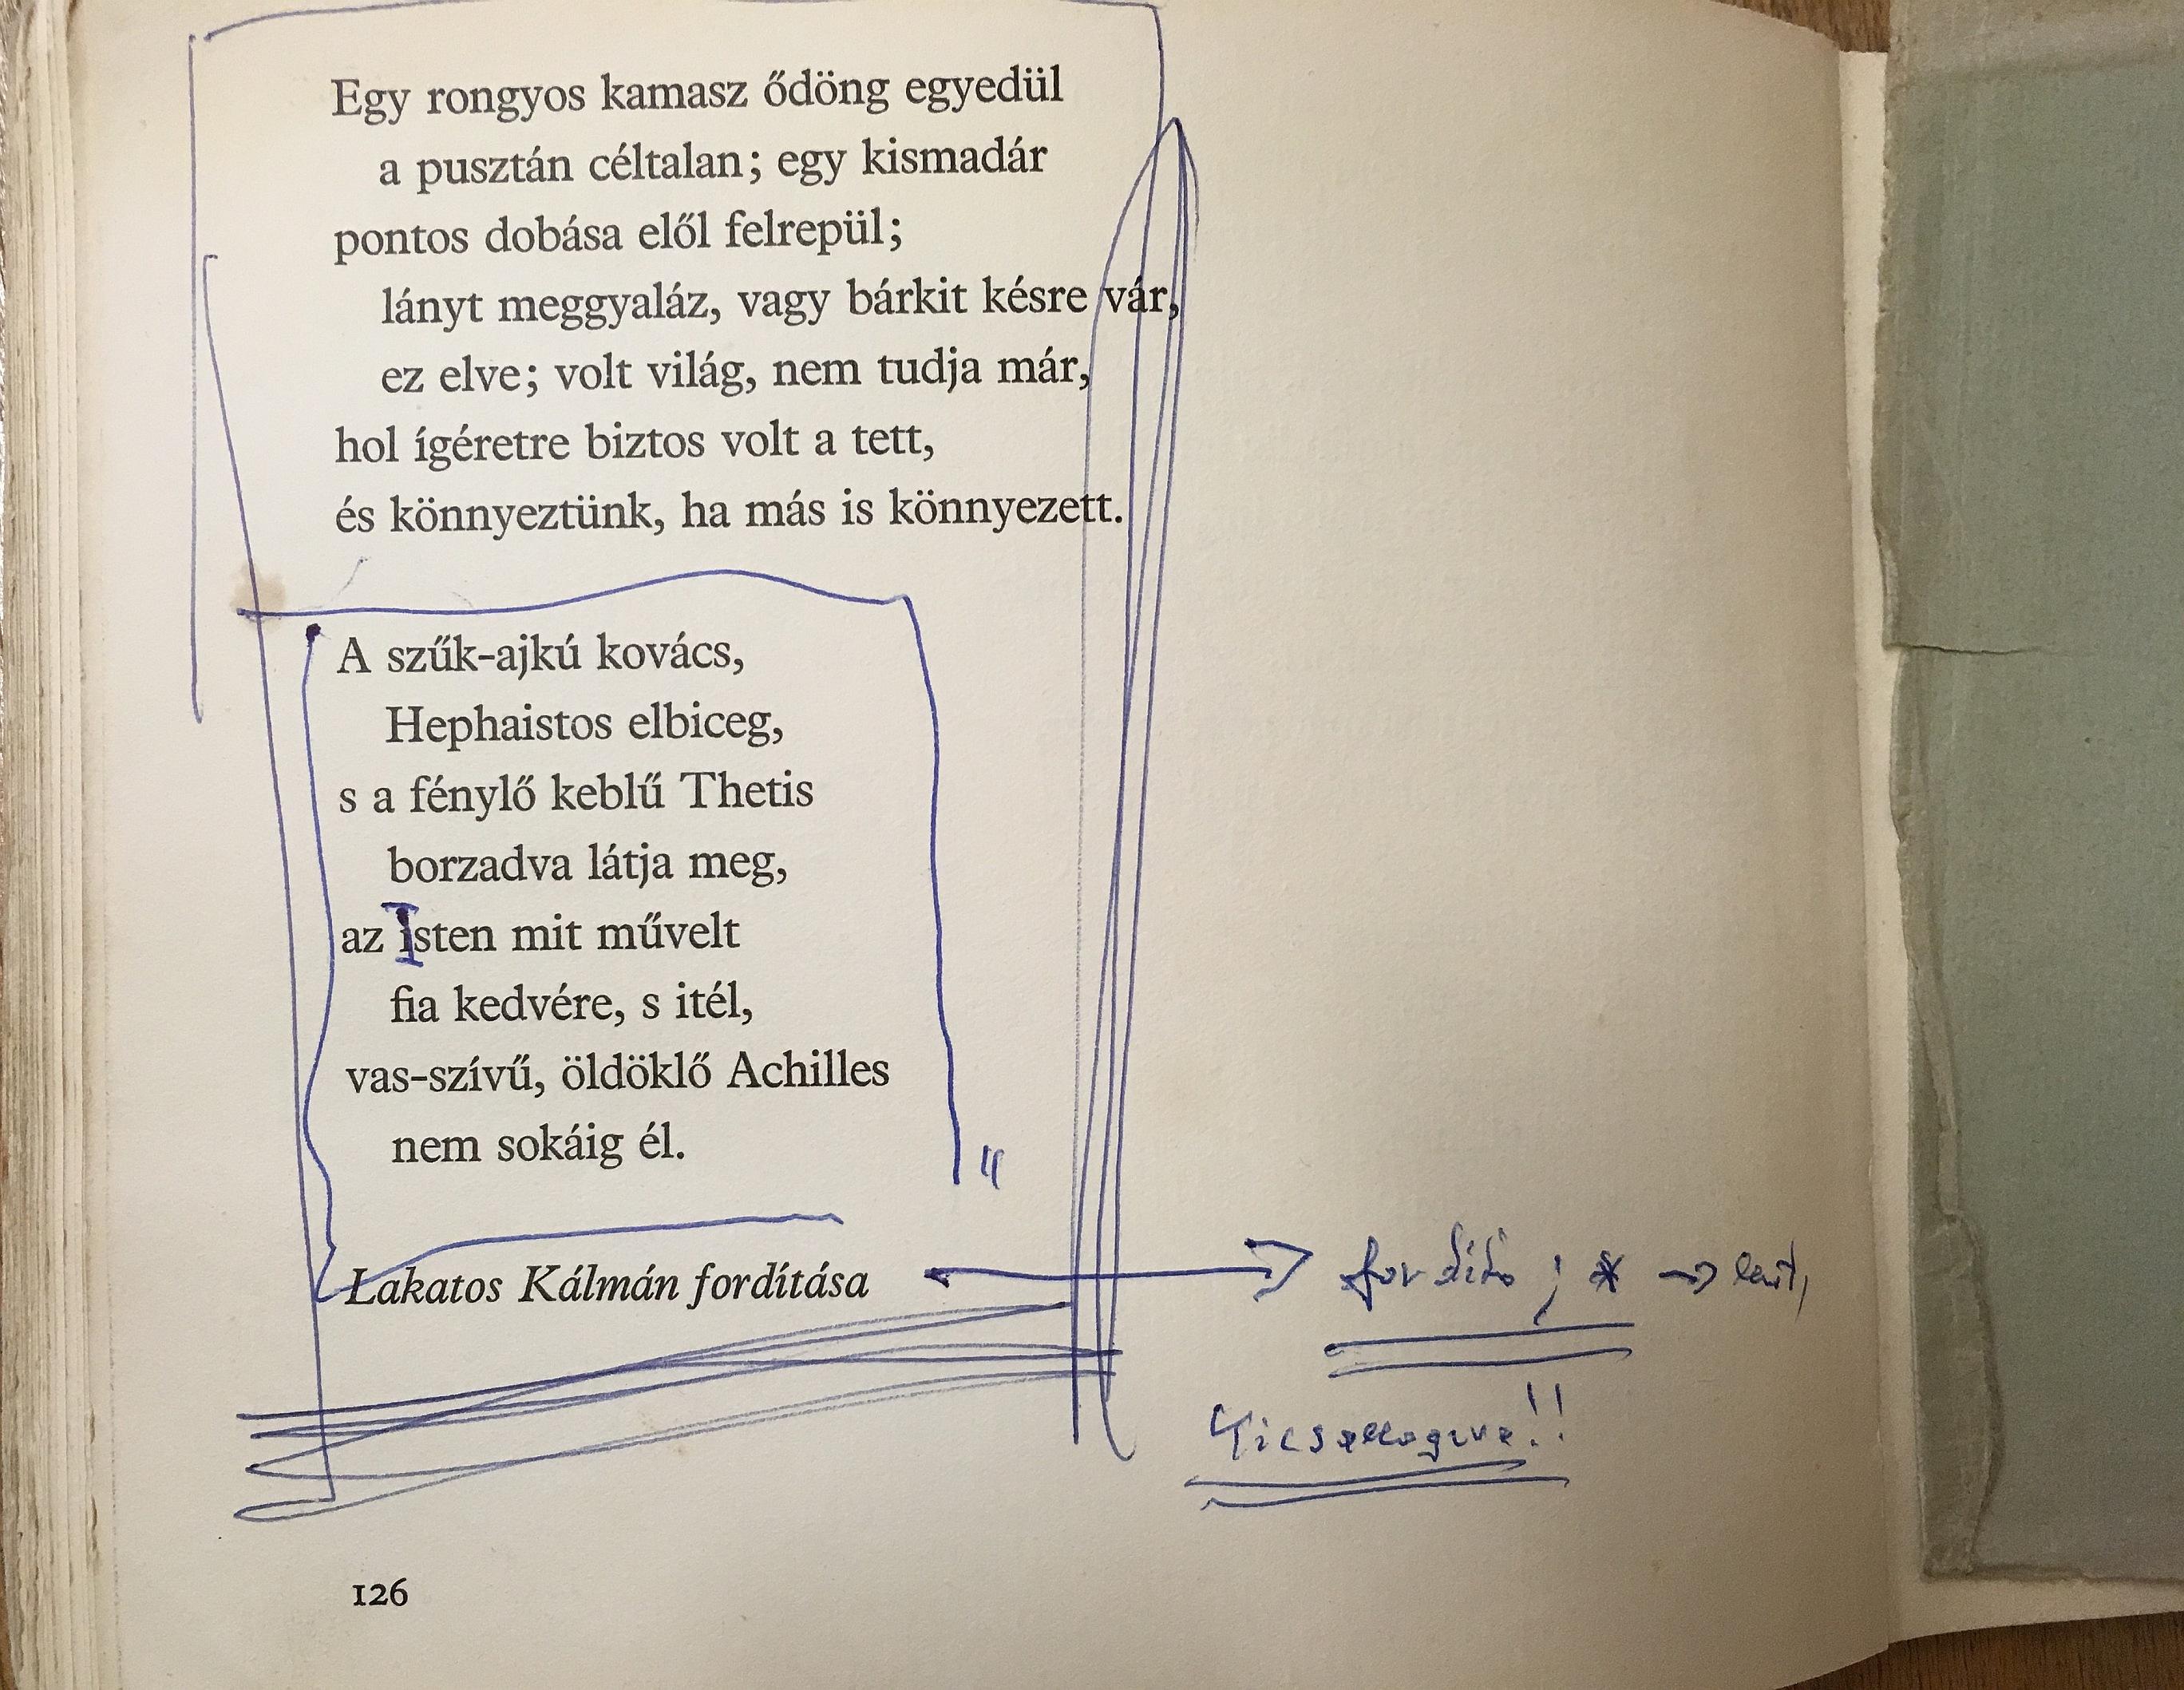 Egy rongyos kamasz ődöng egyedül
a pusztán céltalan; egy kismadár
pontos dobása elől felrepül;
lányt meggyaláz, vagy bárkit késre vár,
ez elve; volt világ, nem tudja már,
hol ígéretre biztos volt a tett,
és könnyeztünk, ha más is könnyezett.
A szűk-ajkú kovács,
Hephaistos elbiceg,
s a fénylő keblű Thetis
borzadva látja meg,
az Isten mit művelt
fia kedvére, s itél,
vas-szívű, öldöklő Achilles
nem sokáig él.
Lakatos Kálmán fordítása
fordító ; * →
126